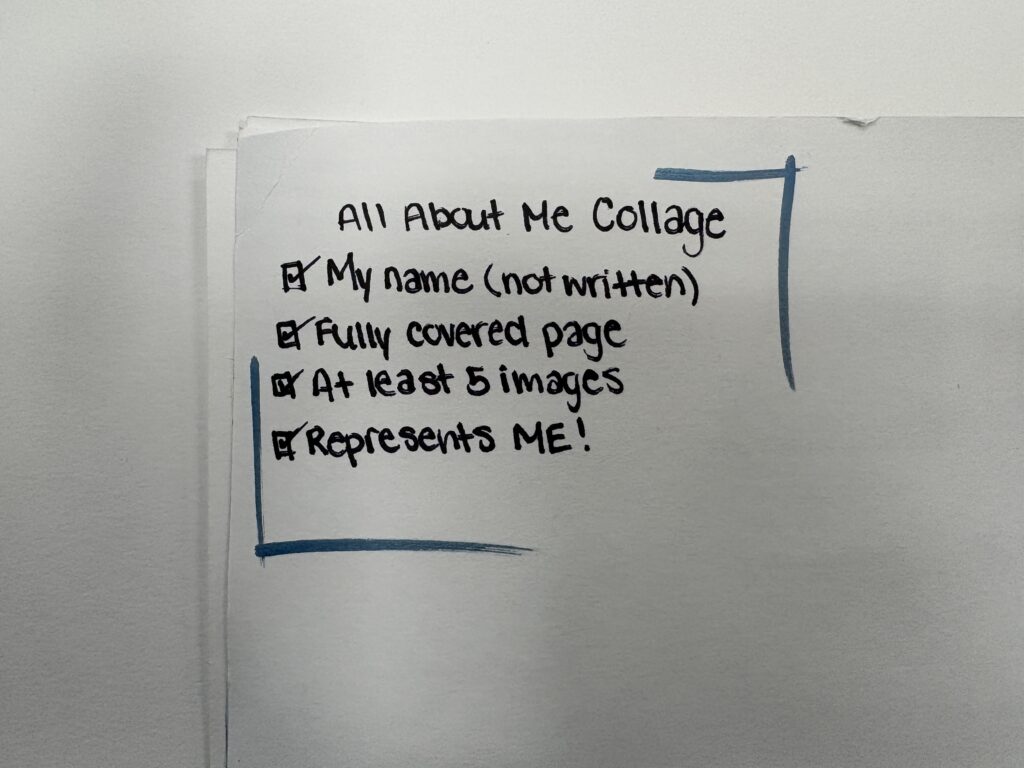 All About Me Collage
☑ My name (not written)
☑ Fully covered page
☑ At least 5 images
☑ Represents ME!